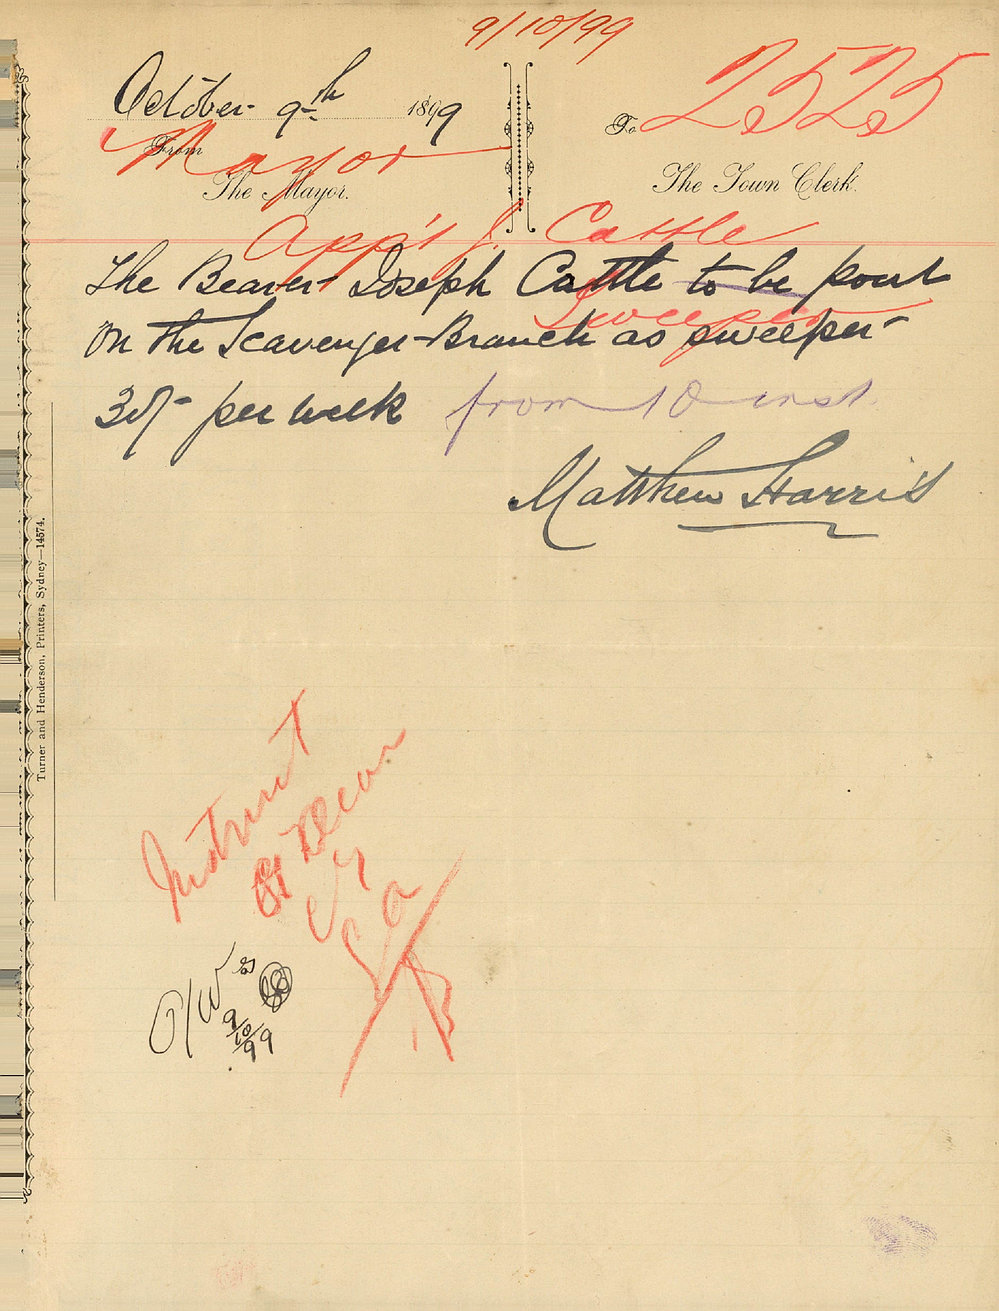 9/10/99
October 9th 1899
To 2525
From
Mayor
The Mayor.
The Town Clerk.
App't J. Cattle
The Bearer Joseph Cattle to be pout
Sweeper
on the Scavenger Branch as sweeper
30/- per week from 10 inst
Matthew Harris
Turner and Henderson, Printers, Sydney—14574.
Instruct
O/W
9/10/99